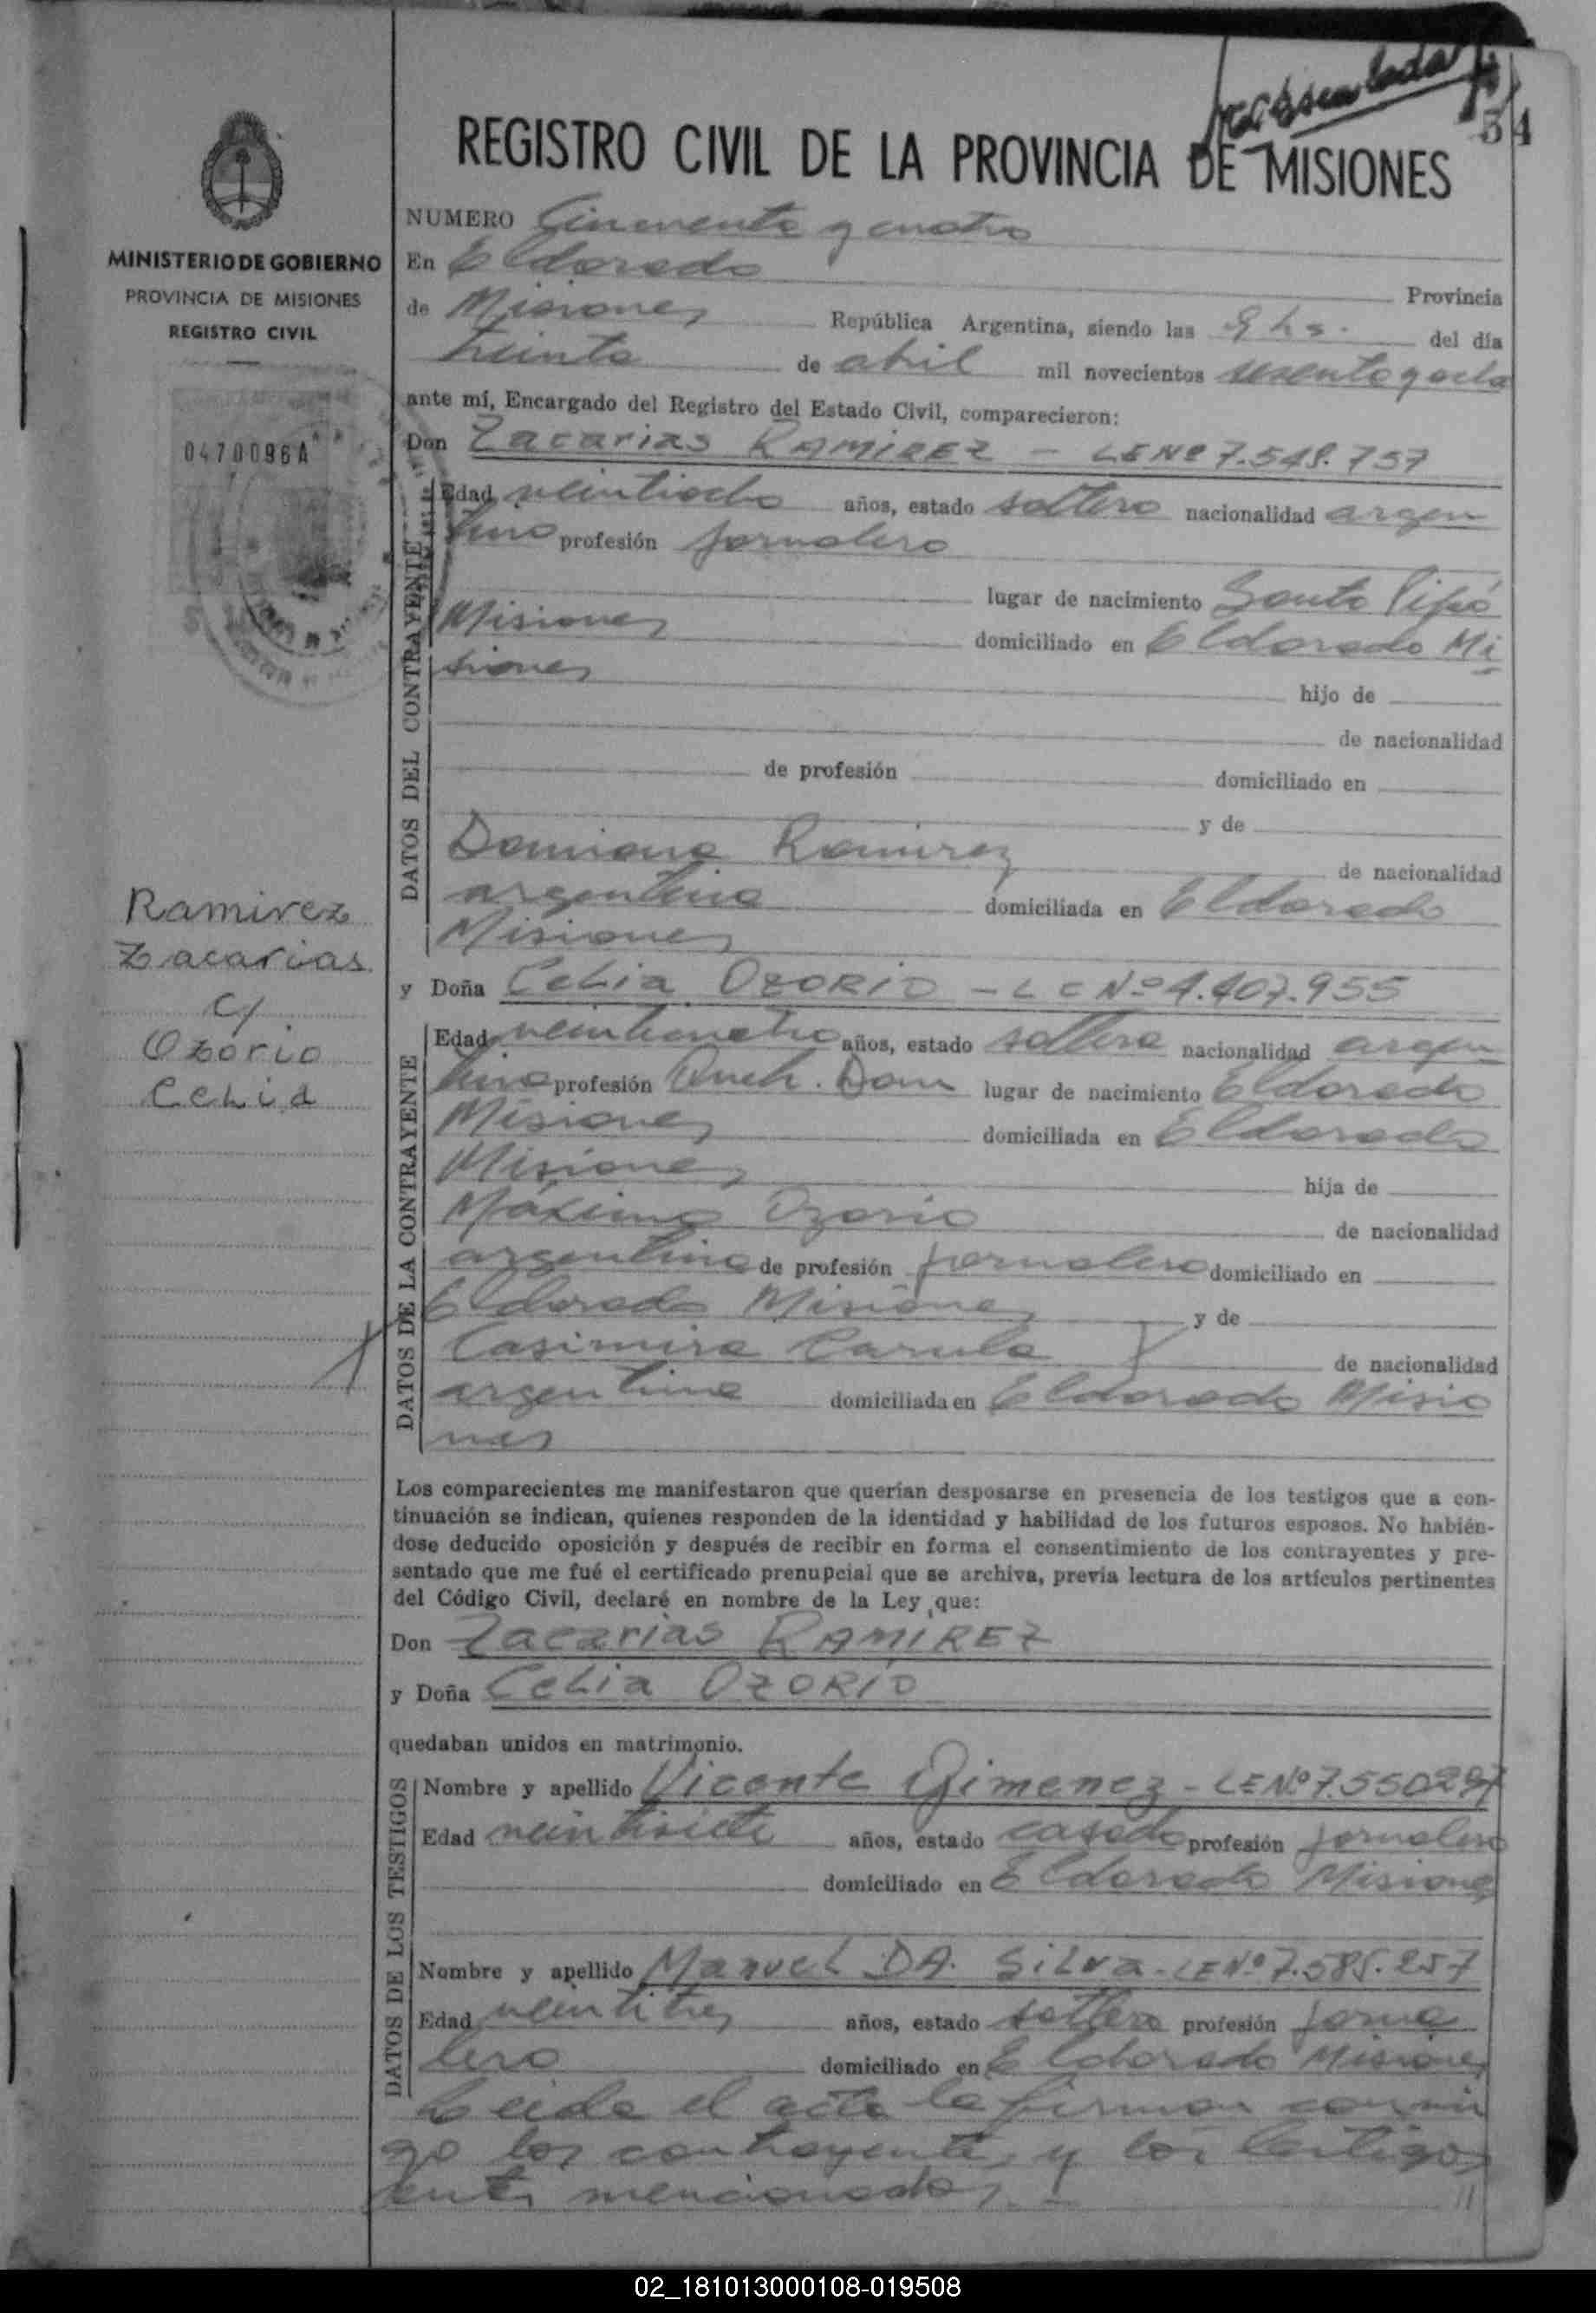 54
REGISTRO CIVIL DE LA PROVINCIA DE MISIONES
MINISTERIO DE GOBIERNO
PROVINCIA DE MISIONES
REGISTRO CIVIL
0470096A
NUMERO Cincuenta y cuatro
En Eldorado Provincia
de Misiones República Argentina, siendo las 9 hs. del día
treinta de abril mil novecientos sesenta y ocho
ante mí, Encargado del Registro del Estado Civil, comparecieron:
Don Zacarias RAMIREZ - LE Nº 7.548.757
DATOS DEL CONTRAYENTE
Edad veintiocho años, estado soltero nacionalidad argen
tino profesión jornalero
lugar de nacimiento Santo Pipó
Misiones domiciliado en Eldorado Mi
siones hijo de
de nacionalidad
de profesión domiciliado en
y de
Damiana Ramirez de nacionalidad
argentina domiciliada en Eldorado
Misiones
Ramirez
Zacarias
c/
Ozorio
Celia
y Doña Celia OZORIO - LC Nº 4.407.955
DATOS DE LA CONTRAYENTE
Edad veinticuatro años, estado soltera nacionalidad argen
tina profesión Queh. Dom lugar de nacimiento Eldorado
Misiones domiciliada en Eldorado
Misiones hija de
Máximo Ozorio de nacionalidad
argentina de profesión jornalero domiciliado en
Eldorado Misiones y de
Casimira de nacionalidad
argentina domiciliada en Eldorado Misio
nes
Los comparecientes me manifestaron que querían desposarse en presencia de los testigos que a con-
tinuación se indican, quienes responden de la identidad y habilidad de los futuros esposos. No habién-
dose deducido oposición y después de recibir en forma el consentimiento de los contrayentes y pre-
sentado que me fué el certificado prenupcial que se archiva, previa lectura de los artículos pertinentes
del Código Civil, declaré en nombre de la Ley que:
Don Zacarias RAMIREZ
y Doña Celia OZORIO
quedaban unidos en matrimonio.
DATOS DE LOS TESTIGOS
Nombre y apellido Vicente Gimenez - LE Nº 7.550297
Edad veintisiete años, estado casado profesión jornalero
domiciliado en Eldorado Misiones
Nombre y apellido Manuel DA. Silva - LE Nº 7.585.257
Edad veintitres años, estado soltero profesión jorna
lero domiciliado en Eldorado Misiones
Leida el acta la firman conmi
go los contrayentes y los testigos
antes mencionados.-
02_181013000108-019508